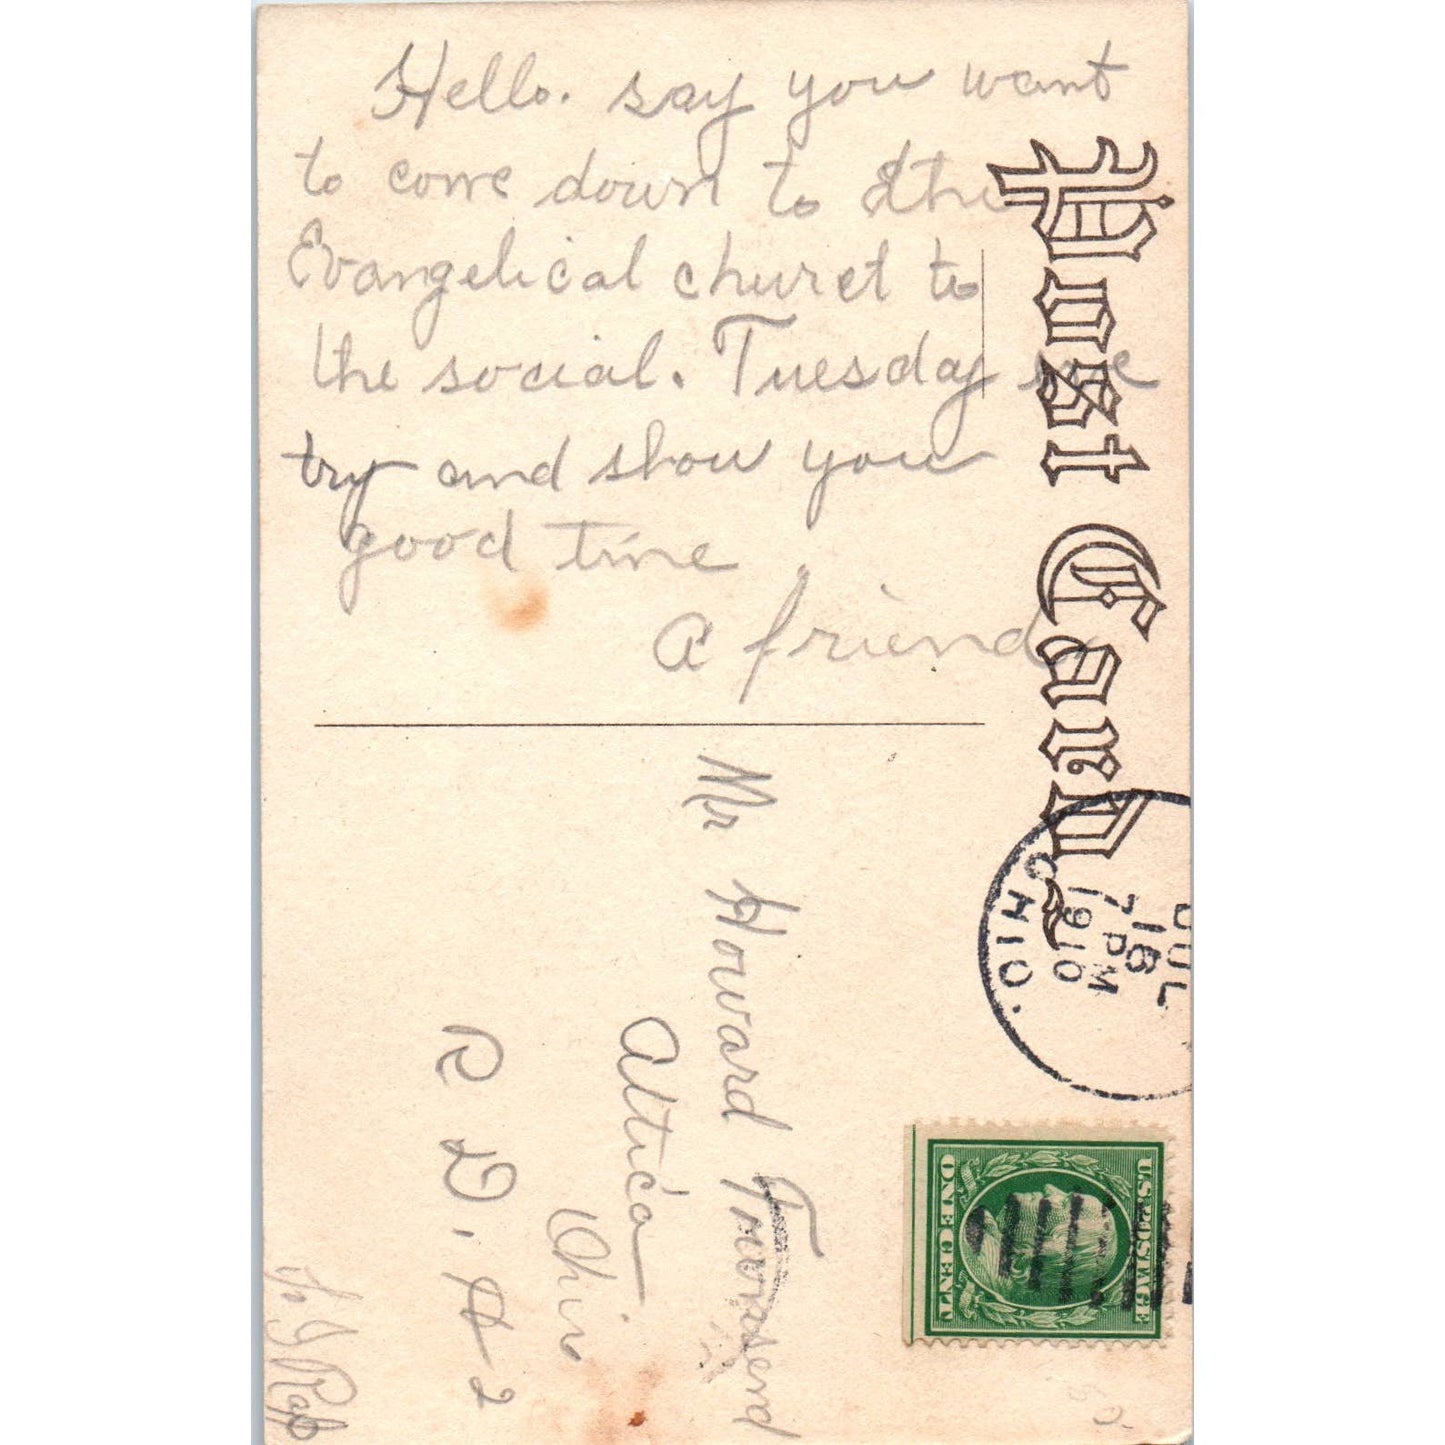 Hello. say you want
to come down to the
Evangelical churct to
the social. Tuesday we
try and show you
good time
A friend
Post Card
Mr Howard Townsend
Attica
Ohio
R D. # 2
OHIO.
JUL
16
7 PM
1910
U.S. POSTAGE
ONE CENT